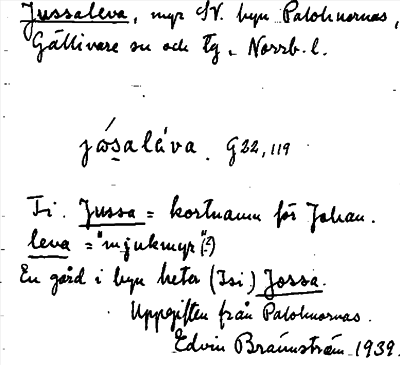 Jussaleva, myr NV. byn Palohuornas,
Gällivare sn och tg. Norrb. l.
jòsaláva. G22, 119
Fi. Jussa = kortnamn för Johan.
leva = "mjukmyr" (?)
En gård i byn heter (Isi) Jossa.
Uppgiften från Palohuornas.
Edvin Brännström 1939.